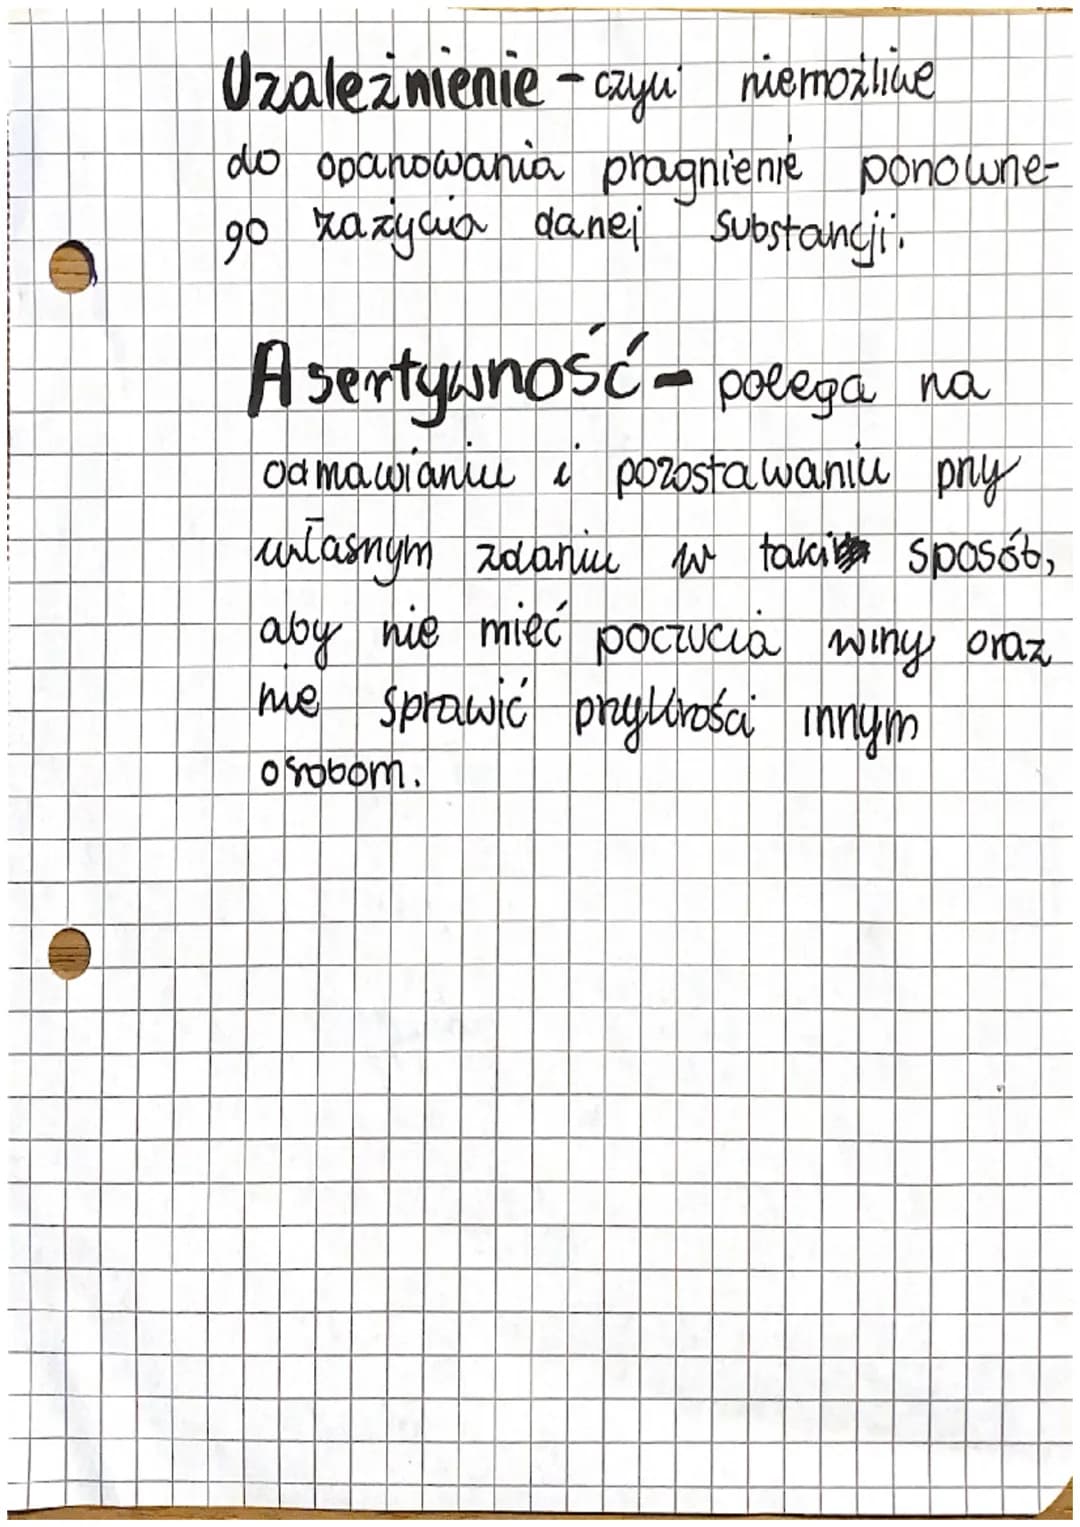 Uzależnienie - czyli niemożliwe
do opanowania pragnienie ponowne-
go zażycia danej substancji.
Asertywność - polega na
odmawianiu i pozostawaniu przy
własnym zdaniu w taki sposób,
aby nie mieć poczucia winy oraz
nie sprawić przykrości innym
osobom.